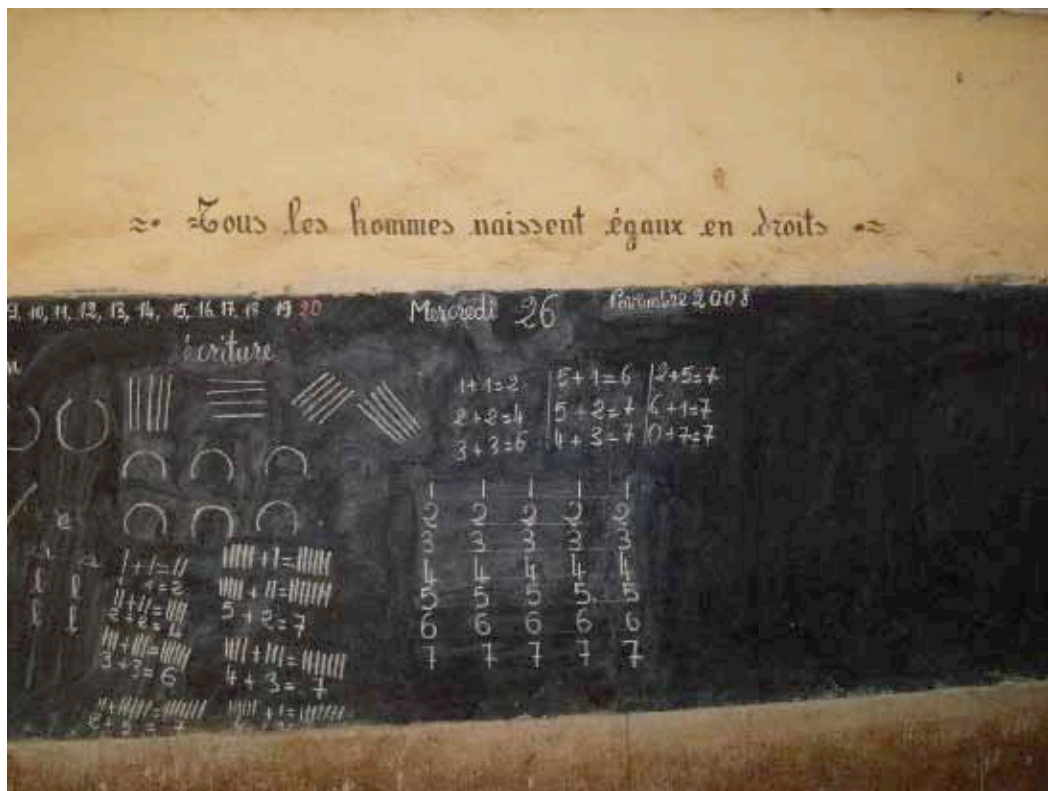 Tous les hommes naissent égaux en droits
9, 10, 11, 12, 13, 14, 15, 16 17 18 19 20
Mercredi 26 Novembre 2008
écriture
1+1=2
2+2=4
3+3=6
5+1=6
5+2=7
4+3=7
2+5=7
6+1=7
0+7=7
1 1 1 1 1
2 2 2 2 2
3 3 3 3 3
4 4 4 4 4
5 5 5 5 5
6 6 6 6 6
7 7 7 7 7
e
l l
l l
1+1=2
2+2=4
3+3=6
5+2=7
4+3=7